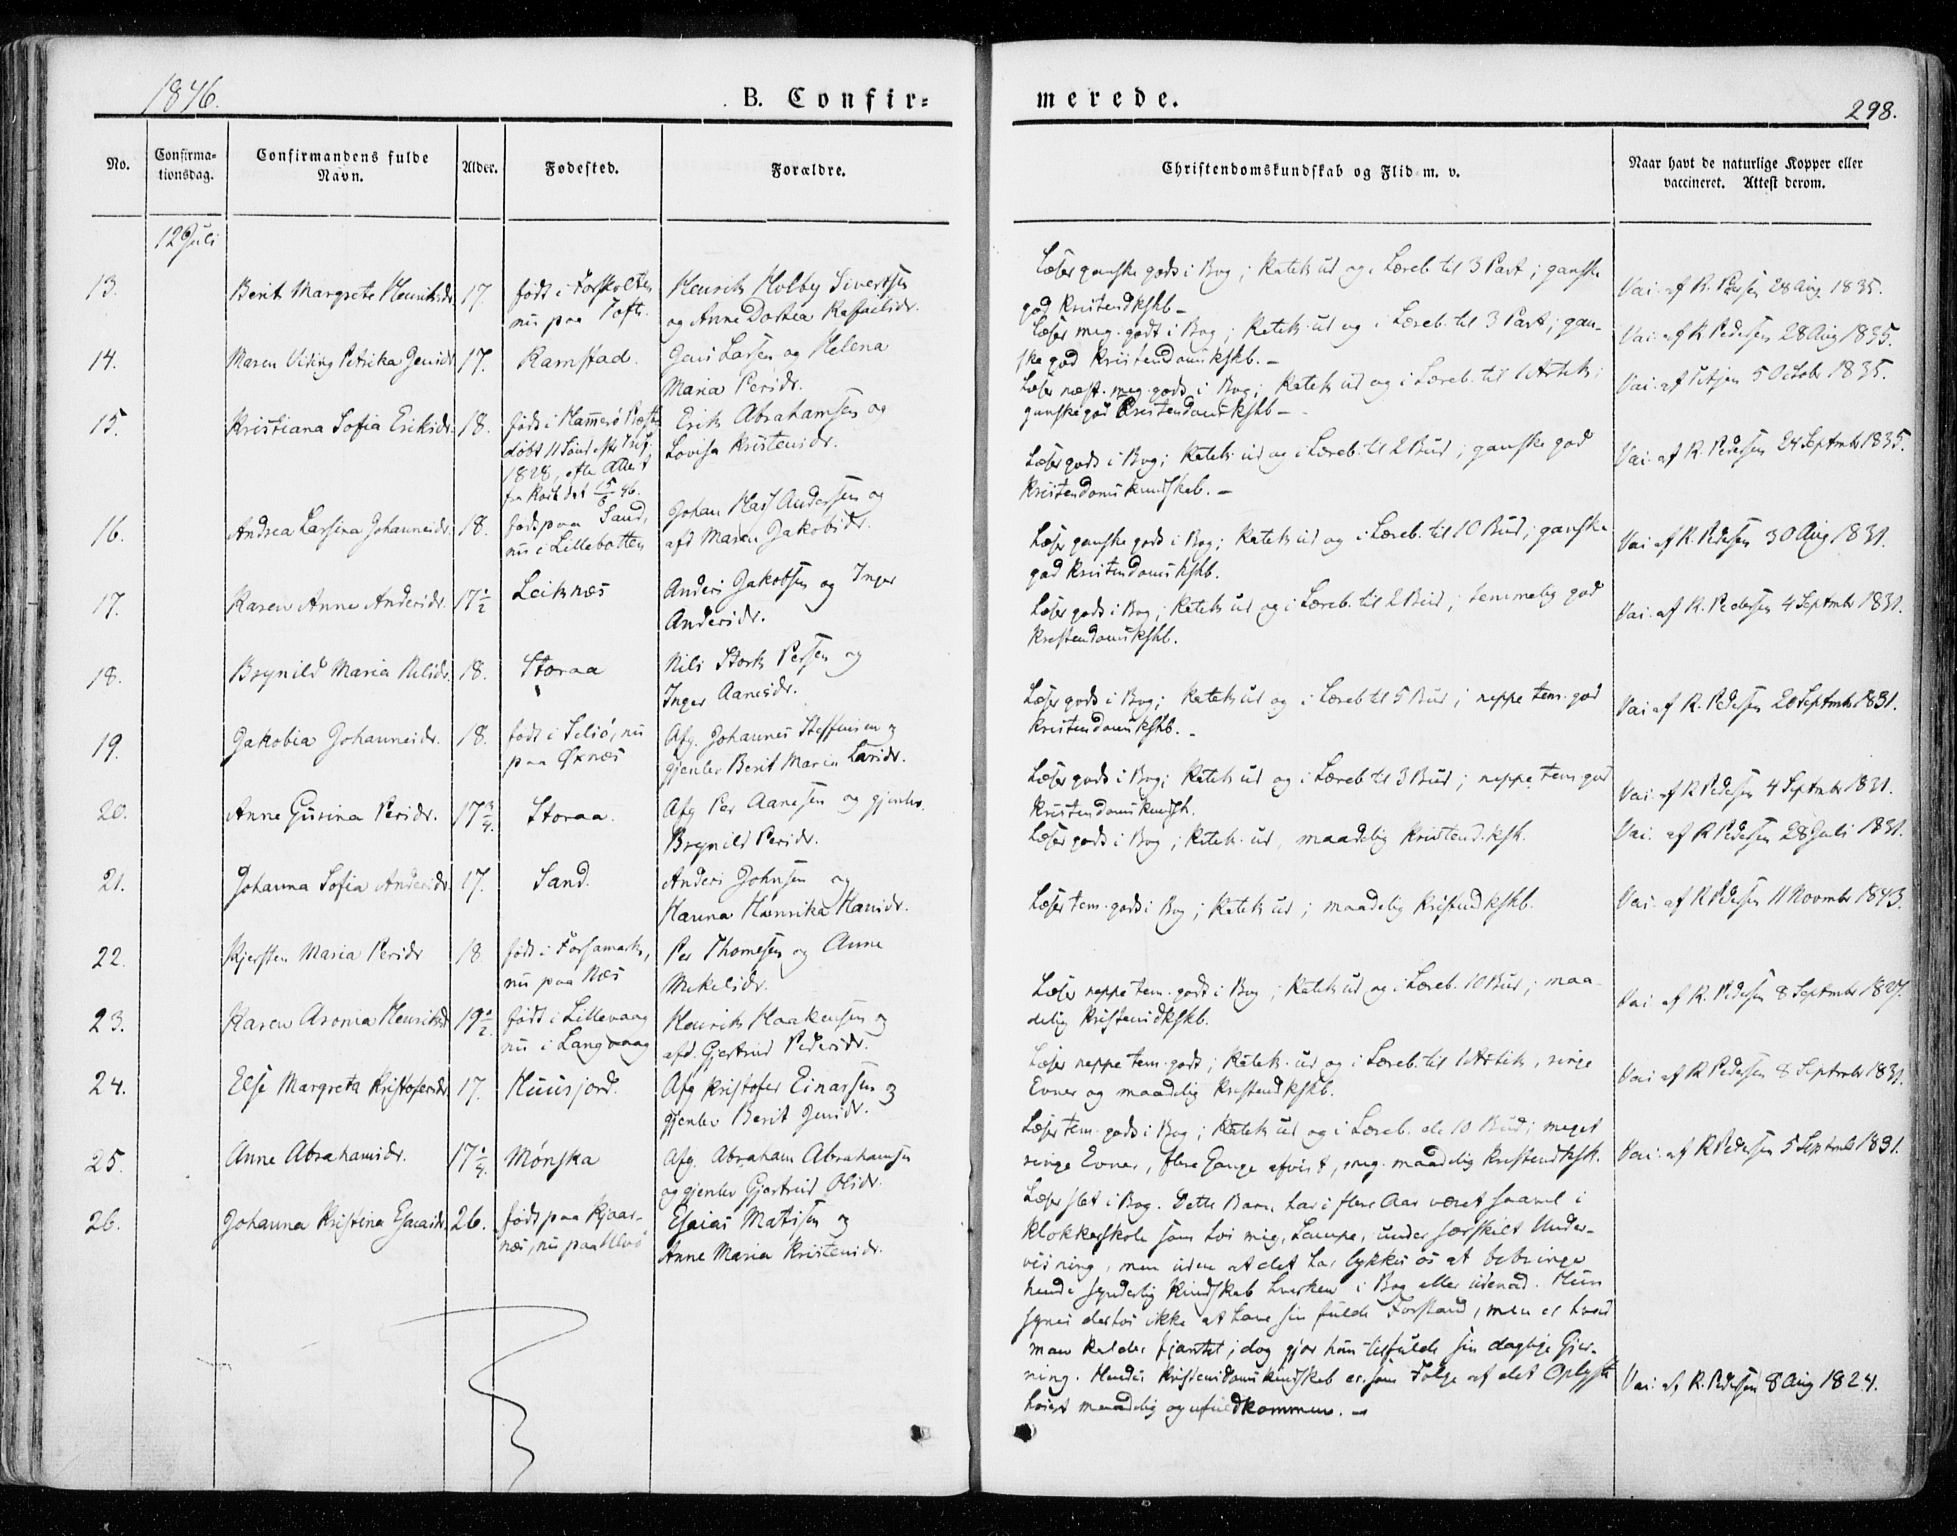 1846.
B. Confir=
merede.
298.
No.
Confirma-
tionsdag.
Confirmandens fulde
Navn.
Alder.
Fødested.
Forældre.
Christendomskundskab og Flid m. v.
Naar havt de naturlige Kopper eller
vaccineret. Attest derom.
12 Juli
13.
Berit Margrete Henriksdr.
17.
født i
nu paa Toft.
Henrik Holby Sivertsen
og Anne Dortea Rafaelsdr.
Læser ganske godt i Bog; Katek. ud og i Læreb. til 3 Part; ganske
god Kristendkskb. –
Vai. af R. Persen 28 Aug 1835.
14.
Maren Petrika Jensdr.
17.
Ramstad.
Jens Larsen og Helena
Maria Persdr.
Læser meg. godt i Bog; Katek. ud og i Læreb. til 3 Part; gan-
ske god Kristendomskskb. –
Vai. af R Pedersen 28 Aug 1835.
15.
Kristiana Sofia Eriksdr.
18.
født i Hammerø Præst.
døbt 11 Sønd. eft. Trif.
1828, efter Attest
Erik Abrahamsen og
Lovisa Kristensdr.
Læser næst. meg. godt i Bog; Katek ud og i Læreb. til 1 Artik;
ganske god Kristendomskskb –
Vai. af 5 October 1835.
16.
Andrea Larsina Johannesdr.
18.
født paa Sand,
nu i Lillebotten
Johan Andersen og
afd Maren Jakobsdr.
Læser godt i Bog; Katek ud og i Læreb. til 2 Bud; ganske god
Kristendomskundskab. –
Vai. af R. Pedersen 24 Septmbr 1835.
17.
Karen Anne Andersdr.
17 1/2
Leiknæs
Anders Jakobsen og Inger
Andersdr.
Læser ganske godt i Bog; Katek ud og i Læreb. til 10 Bud; ganske
god Kristendomskskb.
Vai af R. Pedersen 30 Aug 1831.
18.
Brynild Maria Nilsdr.
18.
Storaa
Nils Stork Persen og
Inger Aanesdr.
Læser godt i Bog; Katek ud og i Læreb. til 2 Bud; temmelig god
Kristendomskskb.
Vai. af R. Pedersen 4 Septmbr 1831.
19.
Jakobia Johannesdr.
18.
født i nu
paa Øxnæs
Afg. Johannes Steffensen og
gjenlev Berit Maria Larsdr.
Læser godt i Bog; Katek ud og i Læreb til 5 Bud; neppe tem. god
Kristendomskskb. –
Vai af R. Pedersen 20 Septmbr 1831.
20.
Anne Gurina Persdr.
17 3/4.
Storaa.
Afg Per Aanesen og gjenlev.
Brynild Persdr.
Læser godt i Bog; Katek ud og i Læreb til 3 Bud; neppe tem. god
Kristendomskundsk.
Vai. af R Pedersen 4 Septmbr 1831.
21.
Johanna Sofia Andersdr.
17.
Sand.
Anders Johnsen og
Hanna Henrika Hansdr.
Læser godt i Bog; Katek. ud, maadelig Kristendksk.
Vai. af R Pedersen 28 Juli 1831.
22.
Kjersten Maria Persdr
18
født i Forsamark,
nu paa Næs
Per Thomesen og Anne
Mikelsdr.
Læser tem. godt i Bog; Katek ud; maadelig Kristendkskb.
Vai. af R Pedersen 11 Novmbr 1843.
23.
Karen Aronia Henriksdr
19 1/2
født i Lillevaag
nu i Langvaag
Henrik Haakensen og
afd. Gjertrud Pedersdr.
Læser neppe tem. godt i Bog; Katek ud og i Læreb. 10 Bud; maa-
delig Kristendkskb.
Vai. af R. Pedersen 8 Septmbr 1827.
24.
Else Margreta Kristofersdr
17.
Huusjord.
Afg Kristofer Einarsen og
gjenlev Berit Jensdr.
Læser neppe tem. godt; Katek. ud og i Læreb. til 1 Artik, ringe
Evner og maadelig Kristendkskb.
Vai af R Pedersen 8 Septmbr 1831.
25.
Anne Abrahamsdr.
17 1/4.
Mønska
Afg. Abraham Abrahamsen
og gjenlev Gjertrud Olsdr.
Læser tem. godt i Bog; Katek ud og i Læreb. de 10 Bud; meget
ringe Evner, flere Gange afvist, meg. maadelig Kristendksk.
Vai. af R Pedersen 5 Septmbr 1831.
26.
Johanna Kristina Esaiasdr.
26.
født paa Kjaar-
næs, nu paa Ulvø
Esaias Matisen og
Anne Maria Kristensdr.
Læser slet i Bog. Dette Barn har i flere Aar været saavel i
Klokkerskole som hos mig, Lampe, under særskilt Under-
visning, men uden at det har lykkes os at bebringe
hende synderlig Kundskab hverken i Bog eller udenad. Hun
synes derhos ikke at have sin fulde Forstand, men er hvad
man kalder fjantet; dog gjør hun tilfulde sin daglige Gjer-
ning. Hendes Kristendomskundskab er som Følge af det Oplyste
høist maadelig og ufuldkommen. –
Vai. af R. Pedersen 8 Aug 1824.